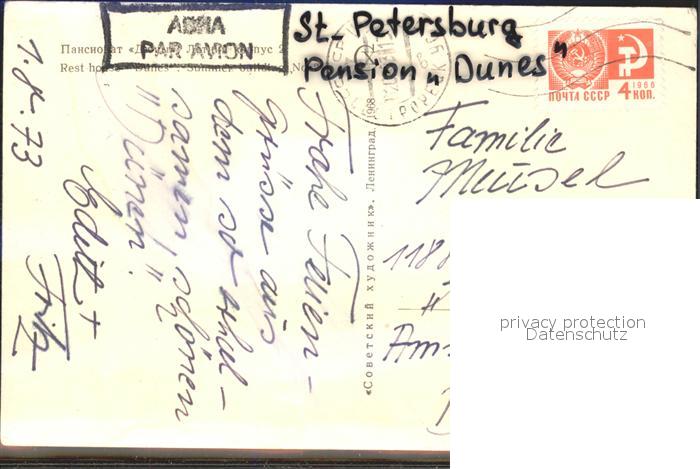 АВИА
PAR AVION
St. Petersburg
Pension „ Dunes "
Пансионат «Дюны» Летний корпус 2
Rest house "Dunes". Summer building No
ПОЧТА СССР
1966
4 КОП.
1.8.73
Frohe Ferien-
grüsse aus
dem so erhol-
samen, schönen
"Dünen".
Edith +
Fritz
1968
«Советский художник». Ленинград.
Familie
Meusel
118
Am
privacy protection
Datenschutz